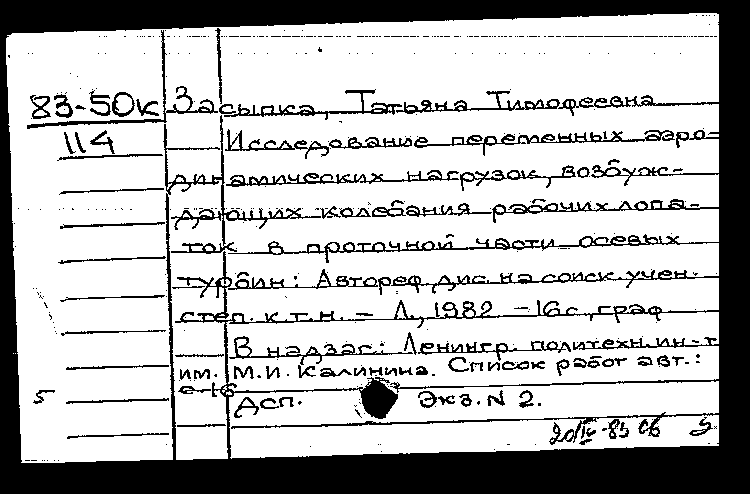 83-50к Засыпка, Татьяна Тимофеевна
114 Исследование переменных аэро-
динамических нагрузок, возбуж-
дающих колебания рабочих лопа-
ток в проточной части осевых
турбин: Автореф. дис. на соиск. учен.
степ. к.т.н. - Л., 1982 - 16 с., граф
В надзаг.: Ленингр. политехн. ин-т
им. М.И. Калинина. Список работ авт.:
с. 16
5 Дсп. Экз. N 2.
20/IV-83